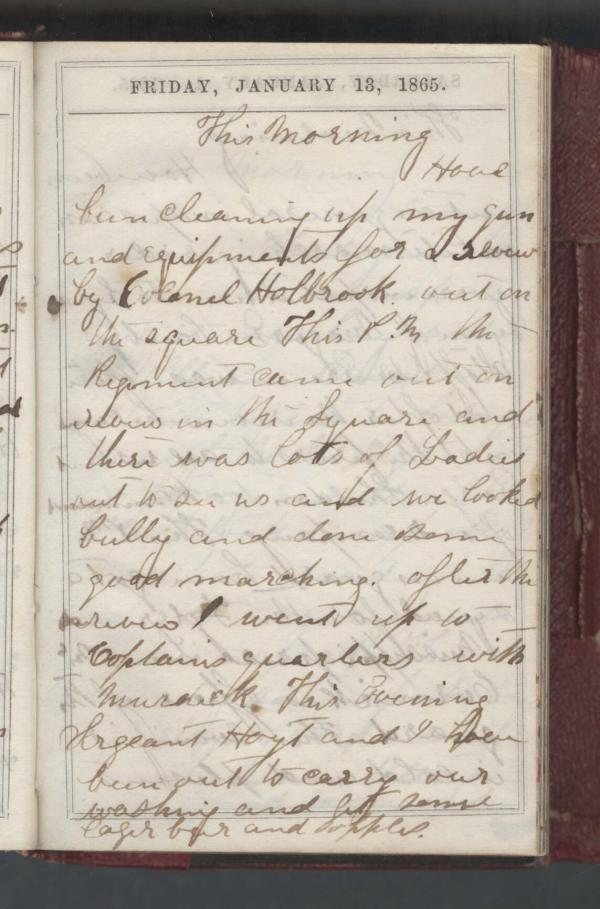 FRIDAY, JANUARY 13, 1865.
This Morning
Have
bun cleaning up my gun
and equipments for a review
by Colonel Holbrook out on
the square This P.M. the
Regiment came out on
review in the Square and
there was lots of Ladies
out to see us and we looked
bully and done some
good marching. after the
review I went up to
Captains quarters with
Murdick This Evening
Sergeant Hoyt and I have
bun out to carry our
washing and got some
lager beer and apples.